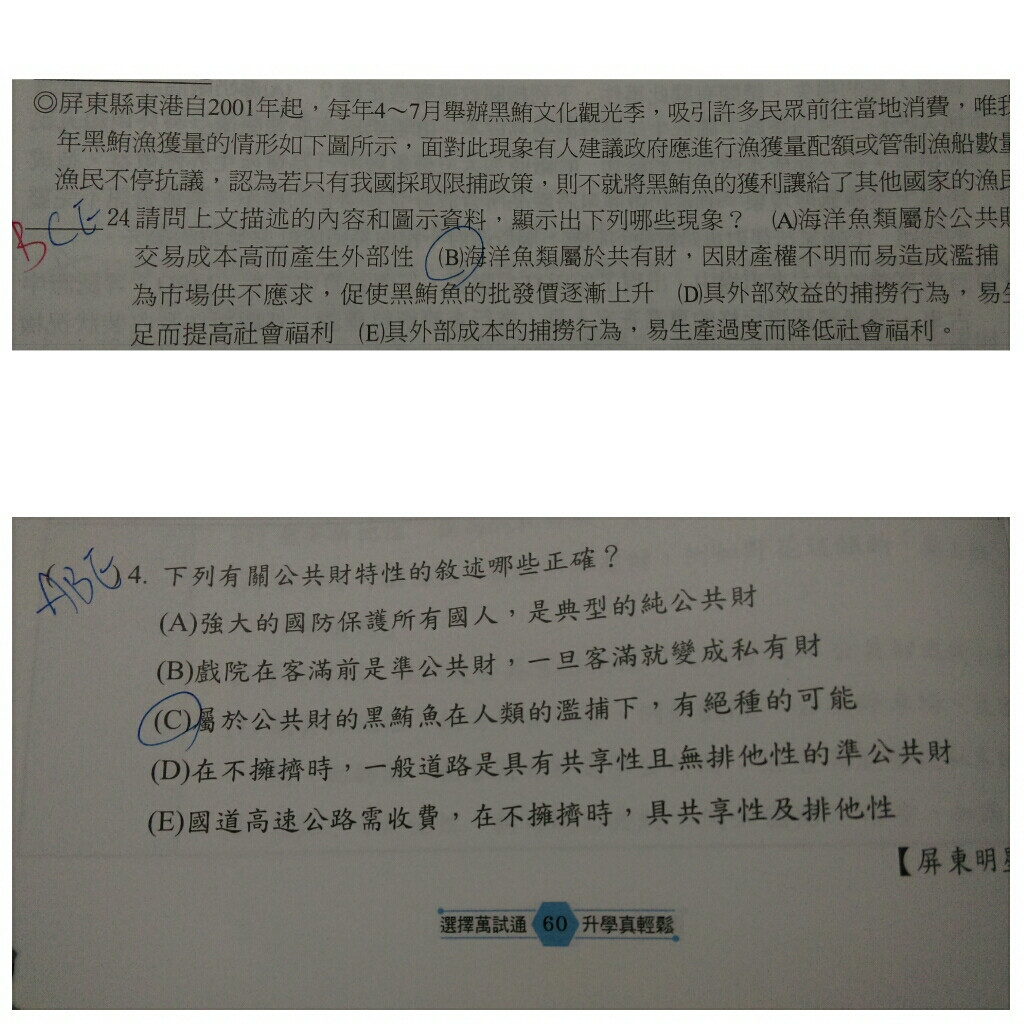 ◎屏東縣東港自2001年起，每年4～7月舉辦黑鮪文化觀光季，吸引許多民眾前往當地消費，唯我
年黑鮪漁獲量的情形如下圖所示，面對此現象有人建議政府應進行漁獲量配額或管制漁船數量
漁民不停抗議，認為若只有我國採取限捕政策，則不就將黑鮪魚的獲利讓給了其他國家的漁民
BCE 24 請問上文描述的內容和圖示資料，顯示出下列哪些現象？ (A)海洋魚類屬於公共財
交易成本高而產生外部性 (B)海洋魚類屬於共有財，因財產權不明而易造成濫捕
為市場供不應求，促使黑鮪魚的批發價逐漸上升 (D)具外部效益的捕撈行為，易生
足而提高社會福利 (E)具外部成本的捕撈行為，易生產過度而降低社會福利。
ABE )4. 下列有關公共財特性的敘述哪些正確？
(A)強大的國防保護所有國人，是典型的純公共財
(B)戲院在客滿前是準公共財，一旦客滿就變成私有財
(C)屬於公共財的黑鮪魚在人類的濫捕下，有絕種的可能
(D)在不擁擠時，一般道路是具有共享性且無排他性的準公共財
(E)國道高速公路需收費，在不擁擠時，具共享性及排他性
【屏東明星
選擇萬試通 60 升學真輕鬆